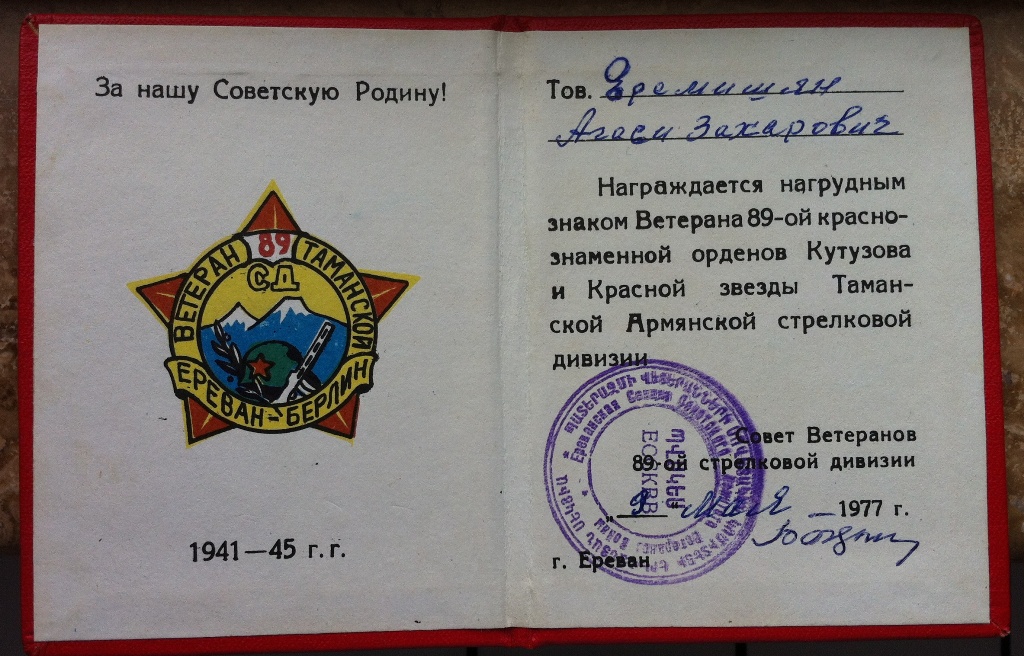 За нашу Советскую Родину!
ВЕТЕРАН 89 ТАМАНСКОЙ
СД
ЕРЕВАН-БЕРЛИН
1941—45 г.г.
Тов. Еремишян
Агаси Захарович
Награждается нагрудным
знаком Ветерана 89-ой красно-
знаменной орденов Кутузова
и Красной звезды Таман-
ской Армянской стрелковой
дивизии
Совет Ветеранов
89-ой стрелковой дивизии
„9" мая 1977 г.
г. Ереван
ՊԱՏԵՐԱԶՄԻ ՎԵՏԵՐԱՆՆԵՐԻ
Ереванская Секция Советского
ЕСКВВ